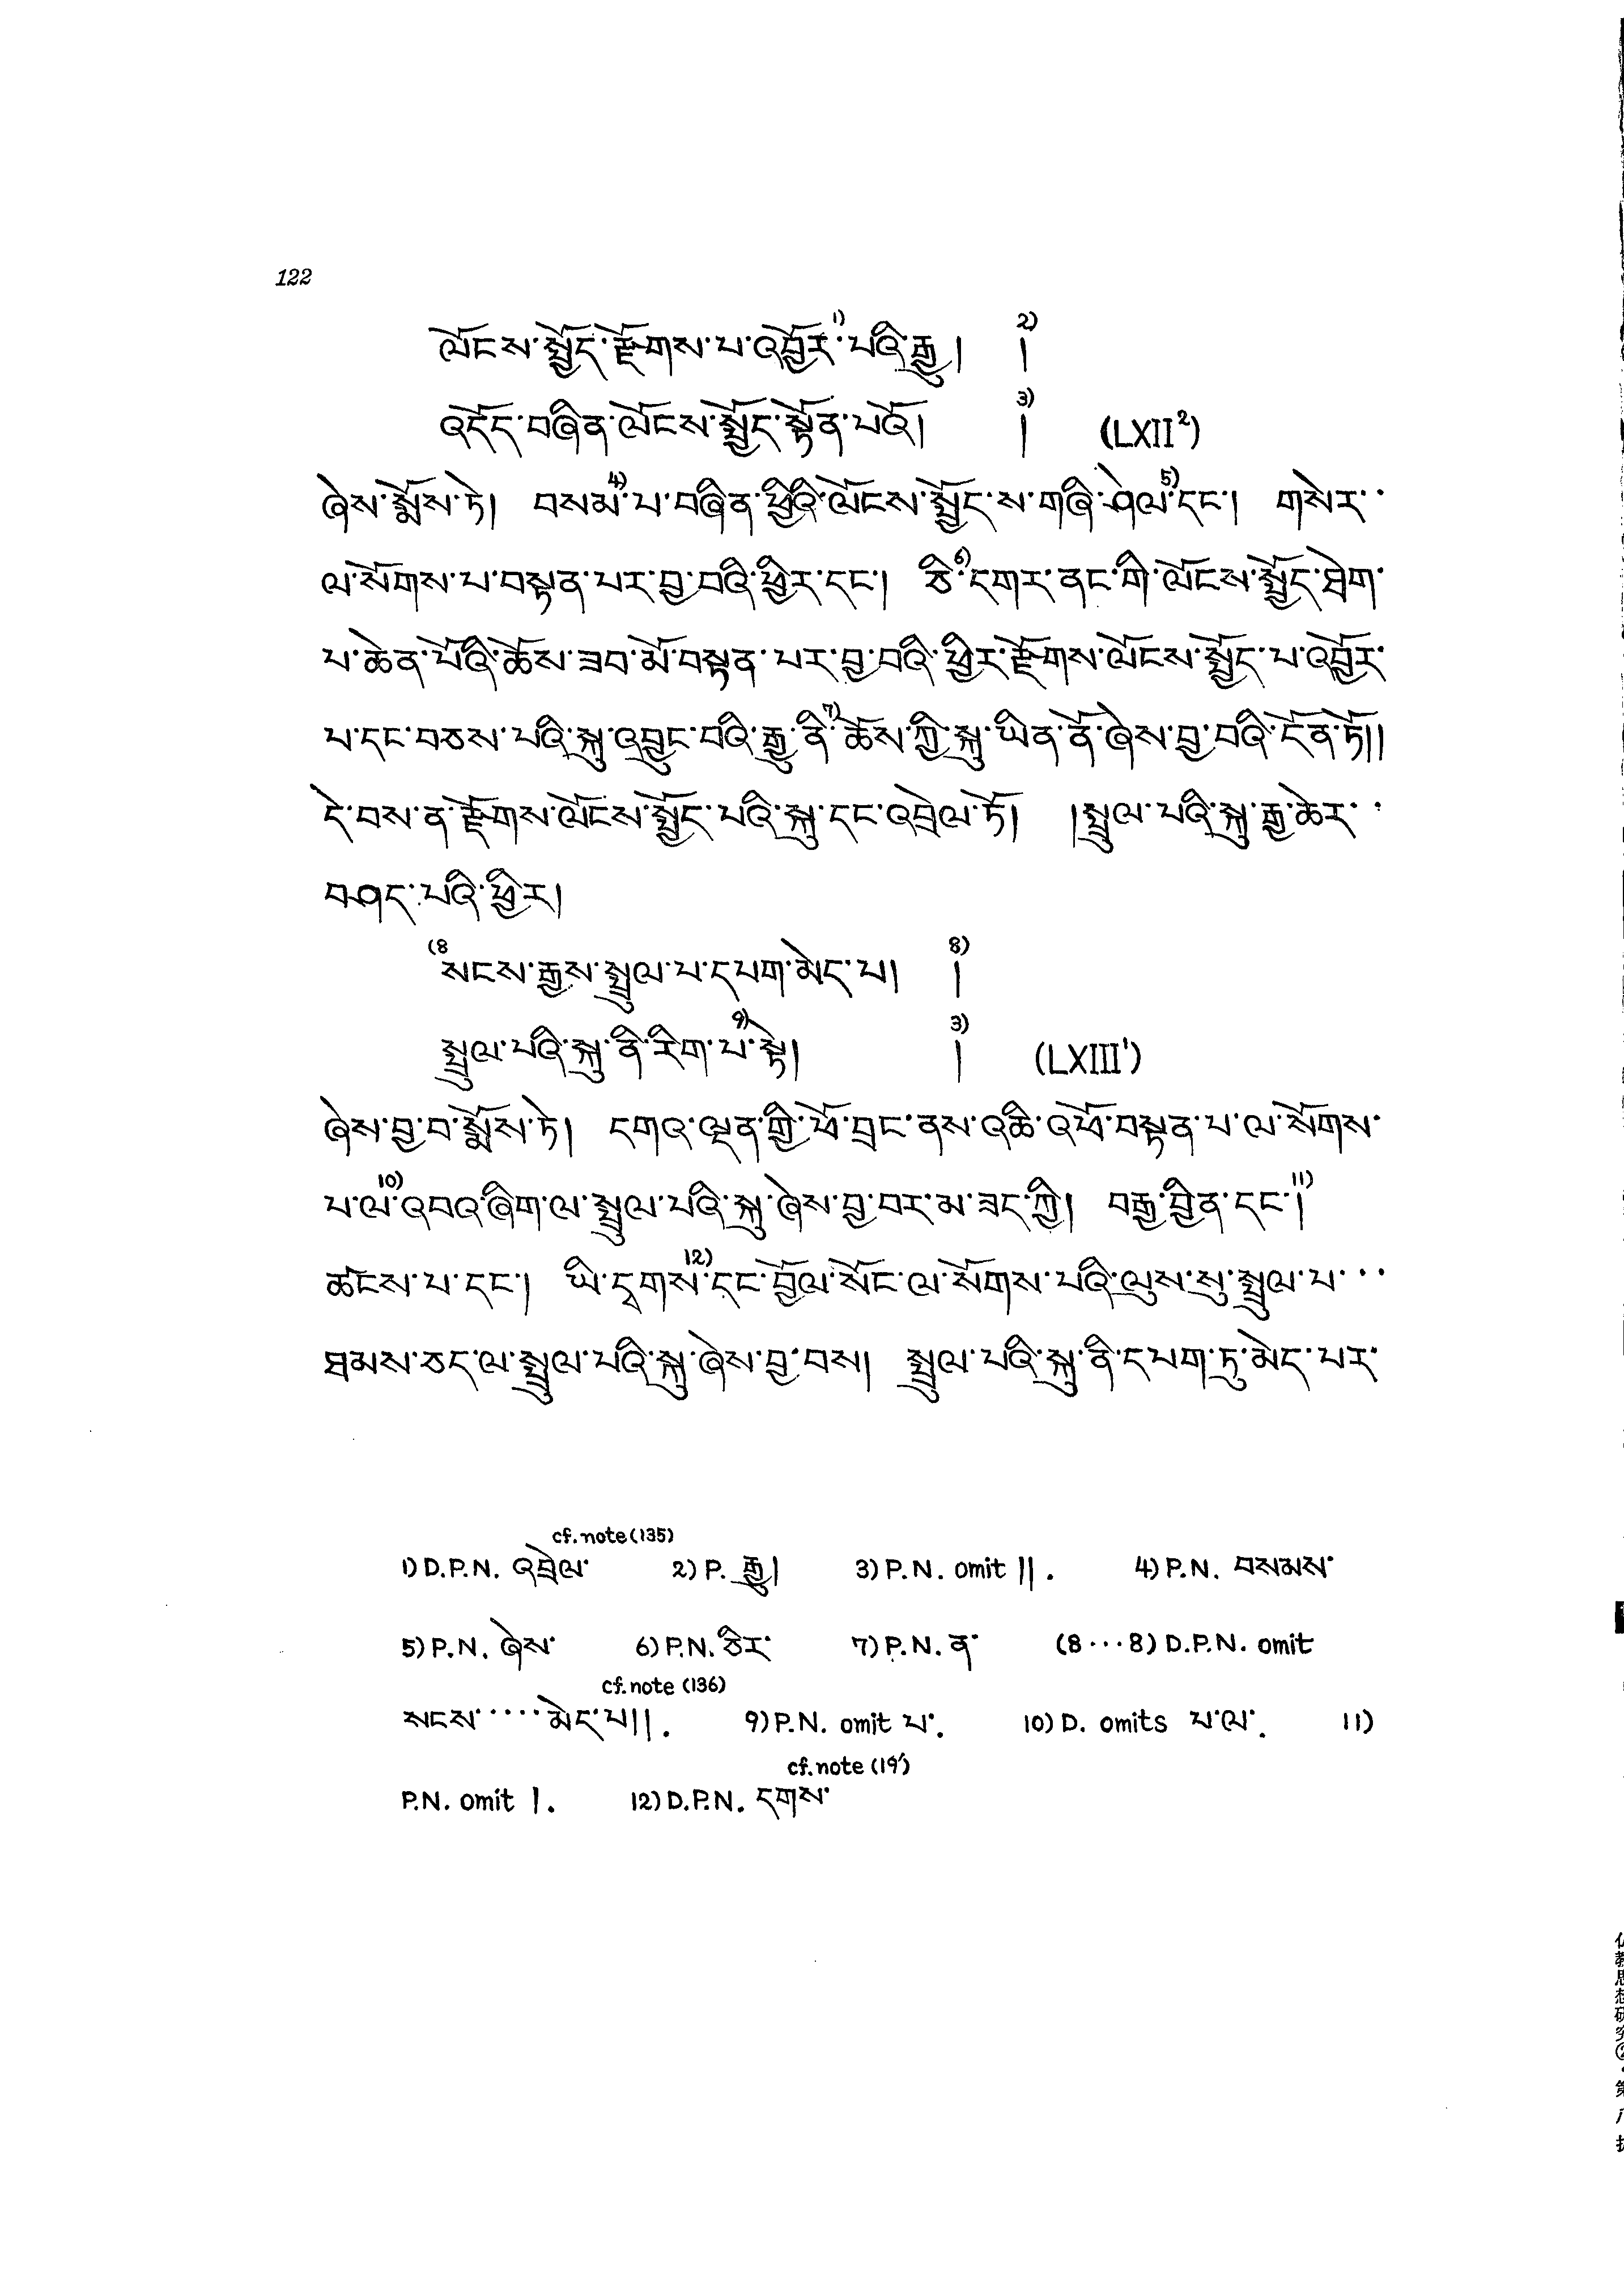 122
ལོངས་སྤྱོད་རྫོགས་པ་འབྱོར་1)པའི་རྒྱུ། །2)
འདོད་བཞིན་ལོངས་སྤྱོད་སྟོན་པའོ། །3) (LXII²)
ཞེས་སྨོས་ཏེ། བསམ་4)པ་བཞིན་ཕྱིའི་ལོངས་སྤྱོད་ས་གཞི་ཤེལ་5)དང་། གསེར་་
ལ་སོགས་པ་བསྟན་པར་བྱ་བའི་ཕྱིར་དང་། ཅི་6)དགར་ནང་གི་ལོངས་སྤྱོད་ཐེག་
པ་ཆེན་པོའི་ཆོས་ཟབ་མོ་བསྟན་པར་བྱ་བའི་ཕྱིར་རྫོགས་ལོངས་སྤྱོད་པ་འབྱོར་
པ་དང་བཅས་པའི་སྐུ་འབྱུང་བའི་རྒྱུ་ནི་7)ཆོས་ཀྱི་སྐུ་ཡིན་ནོ་ཞེས་བྱ་བའི་དོན་ཏོ།།
དེ་བས་ན་རྫོགས་ལོངས་སྤྱོད་པའི་སྐུ་དང་འབྲེལ་ཏོ། །སྤྲུལ་པའི་སྐུ་རྒྱ་ཆེར་་
བཤད་པའི་ཕྱིར།
(8སངས་རྒྱས་སྤྲུལ་པ་དཔག་མེད་པ། །8)
སྤྲུལ་པའི་སྐུ་ནི་རིག་པ་9)སྟེ། །3) (LXIII¹)
ཞེས་བྱ་བ་སྨོས་ཏེ། དགའ་ལྡན་གྱི་ཕོ་བྲང་ནས་འཆི་འཕོ་བསྟན་པ་ལ་སོགས་
པ་ལ་10)འབའ་ཞིག་ལ་སྤྲུལ་པའི་སྐུ་ཞེས་བྱ་བར་མ་ཟད་ཀྱི། བརྒྱ་བྱིན་དང་།11)
ཚངས་པ་དང་། ཡི་དྭགས་12)དང་བྱོལ་སོང་ལ་སོགས་པའི་ལུས་སུ་སྤྲུལ་པ་···
ཐམས་ཅད་ལ་སྤྲུལ་པའི་སྐུ་ཞེས་བྱ་བས། སྤྲུལ་པའི་སྐུ་ནི་དཔག་ཏུ་མེད་པར་
cf. note (135)
1) D.P.N. འབྲེལ་ 2) P. རྒྱུ། 3) P.N. omit ||. 4) P.N. བསམས་
5) P.N. ཞེས་ 6) P.N. ཅིར་ 7) P.N. ན་ (8···8) D.P.N. omit
cf. note (136)
སངས་·····མེད་པ།།. 9) P.N. omit པ་. 10) D. omits པ་ལ་. 11)
cf. note (19')
P.N. omit |. 12) D.P.N. དགས་